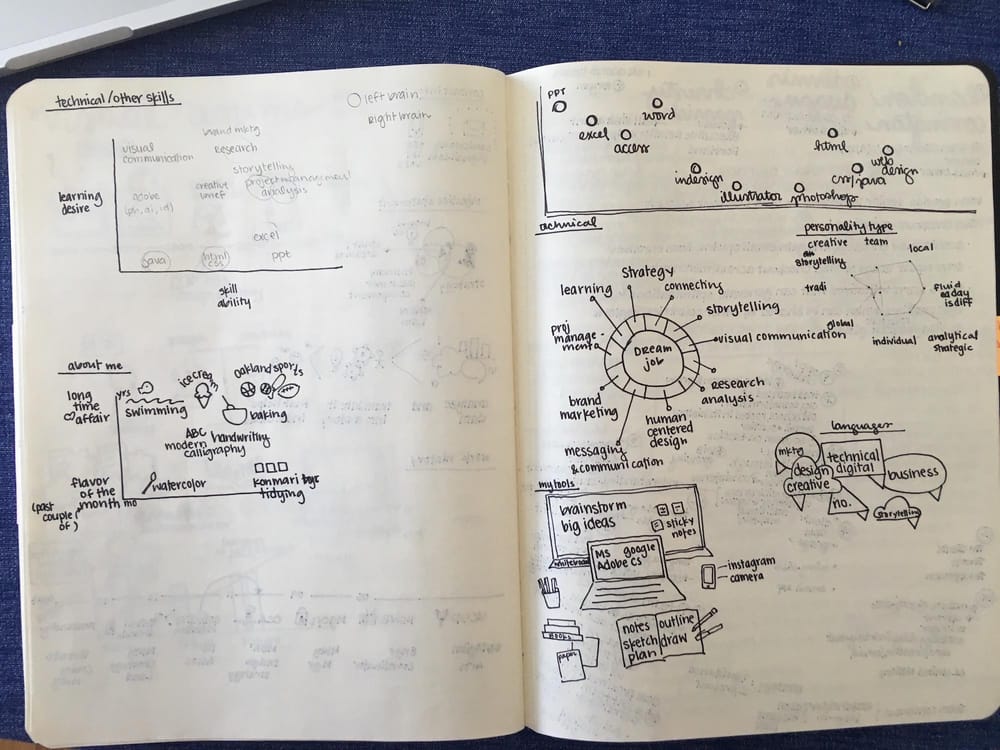 technical/other skills
left brain
right brain
brand mktg
visual
communication
Research
storytelling
project management
analysis
creative
brief
adobe
(ps, ai, id)
learning
desire
excel
java
html
css
ppt
skill
ability
about me
long
time
affair
yrs
swimming
ice cream
oakland sports
baking
ABC
modern handwriting
calligraphy
watercolor
konmari
tidying
flavor
of the
month
mo
(past
couple
of)
PPT
excel
word
access
indesign
illustrator
photoshop
html
css/java
web
design
technical
personality type
creative
team
local
storytelling
tradi
fluid
ea day
is diff
global
individual
analytical
strategic
strategy
learning
connecting
storytelling
proj
manage-
ment
visual communication
DREAM
job
Research
analysis
brand
marketing
human
centered
design
messaging
& communication
languages
mktg
design
creative
technical
digital
business
no.
storytelling
my tools
brainstorm
big ideas
sticky
notes
whiteboard
MS google
Adobe CS
instagram
camera
BOOKS
paper
notes
sketch
plan
outline
draw